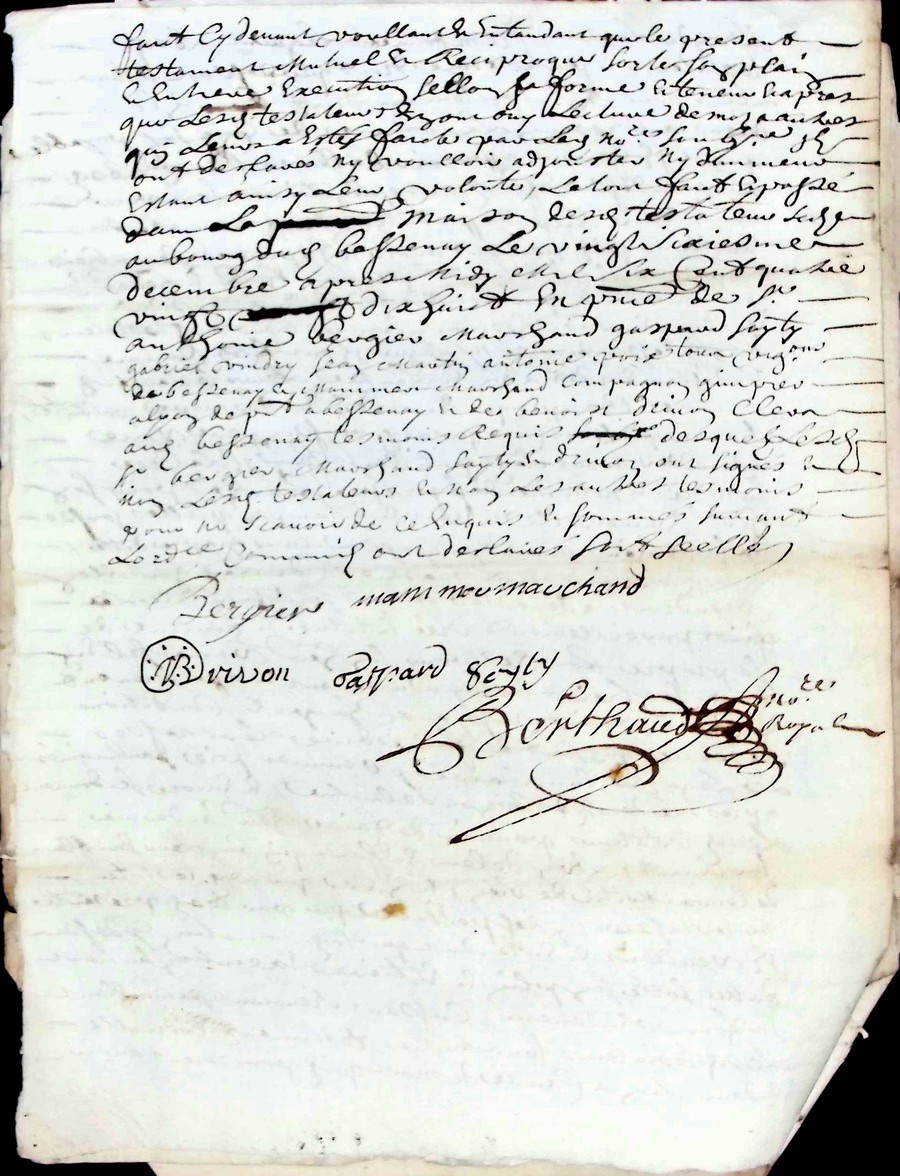 faict Cy devant voullant & Entandant que le present
testament Mutuel & Reciproque sorte son plain
& Entiere Execution sellon sa forme & teneur Et apres
que Lesd testateurs ont ouy Lecture de mot a autres
quy Leurs a Estes faicte par Led no.re soubs.ne Ils
ont desclares ny voulloir adjouster ny diminuer
Estant ainsy Leur volonté, Le tout faict & passé
dans La maison desd testateurs
au bourg dud bessenay Le vingt sixiesme
decembre apres Midy Mil Six Cent quatre
vingt dix huict En p.nce de s.r
anthoine bergier Marchand gaspard sayty
gabriel vindry Jean Martin antoine
de bessenay & Mammer Marchand Compagnon
de p.nt a bessenay & de benoist drivon Clerc
aud bessenay tesmoins Requis desquels Led
s.r bergier, Marchand sayty & drivon ont signés &
non Lesd testateurs & non Les autres tesmoins
pour ne scavoir de ce Enquis & sommés suivant
Lord.ce ont desclaires soit scellé
Bergier mammer marchand
Drivon Gaspard Seyty
Berthaud no.re
Royal